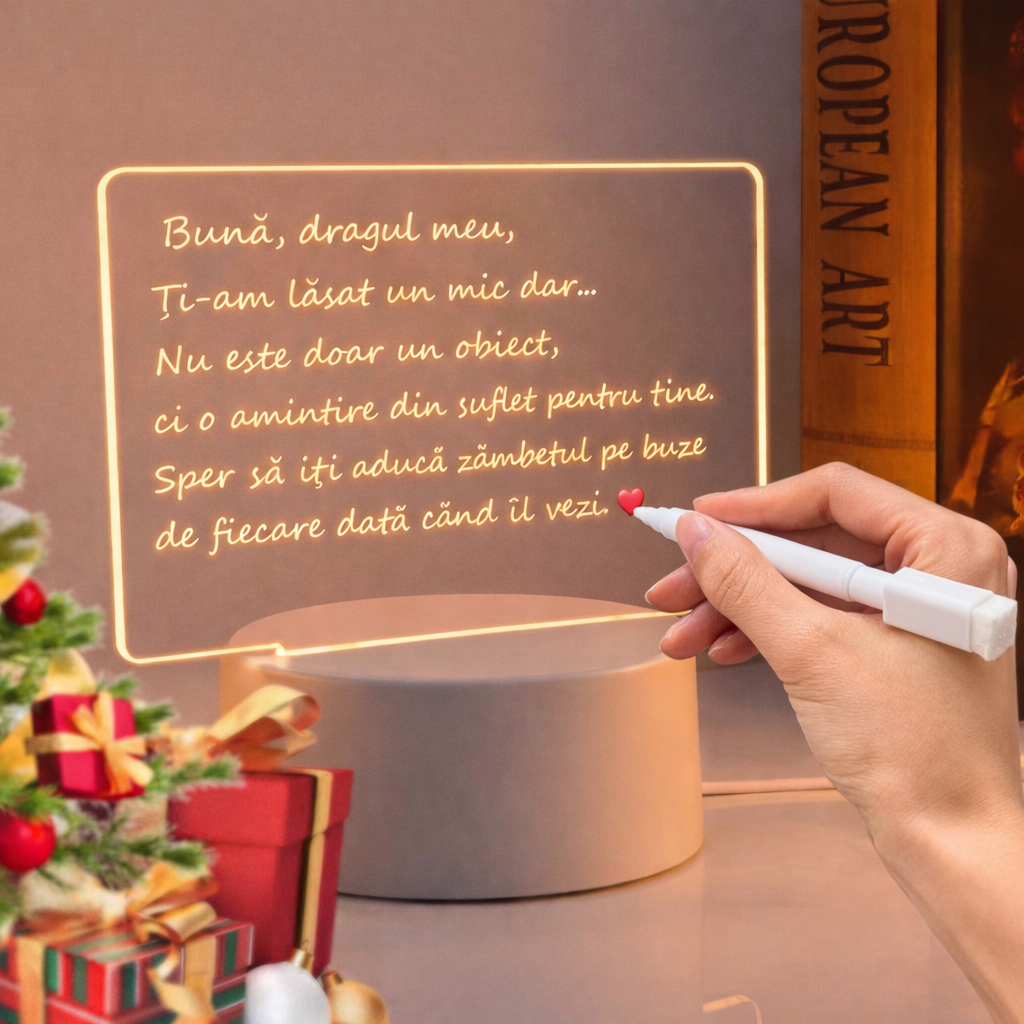 Bună, dragul meu,
Ți-am lăsat un mic dar...
Nu este doar un obiect,
ci o amintire din suflet pentru tine.
Sper să iți aducã zãmbetul pe buze
de fiecare datã cãnd îl vezi. ❤️
UROPEAN ART